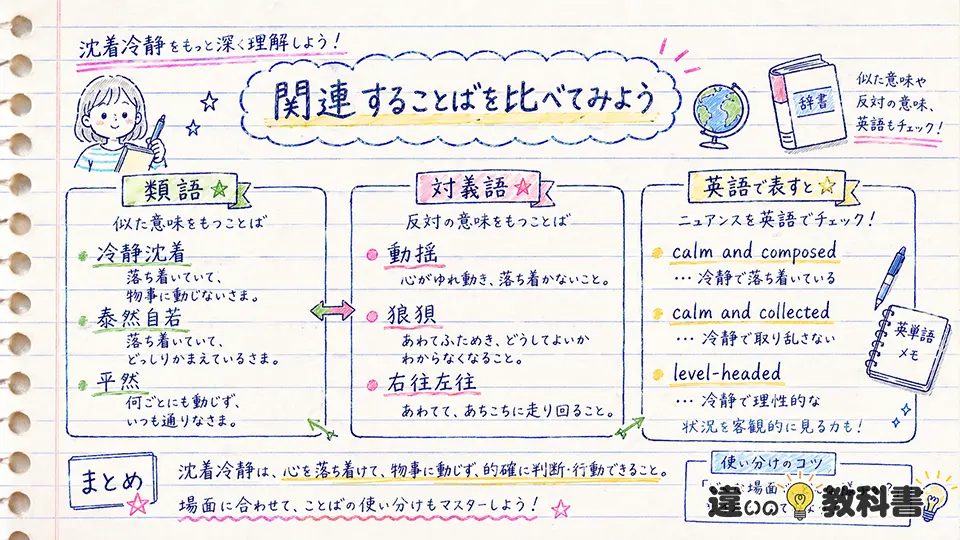 沈着冷静をもっと深く理解しよう！
関連することばを比べてみよう
辞書
似た意味や
反対の意味、
英語もチェック！
類語
似た意味をもつことば
冷静沈着
落ち着いていて、
物事に動じないさま。
泰然自若
落ち着いていて、
どっしりかまえているさま。
平然
何ごとにも動じず、
いつも通りなさま。
対義語
反対の意味をもつことば
動揺
心がゆれ動き、落ち着かないこと。
狼狽
あわてふためき、どうしてよいか
わからなくなること。
右往左往
あわてて、あちこちに走り回ること。
英語で表すと
ニュアンスを英語でチェック！
calm and composed
… 冷静で落ち着いている
calm and collected
… 冷静で取り乱さない
level-headed
… 冷静で理性的な
状況を客観的に見る力も！
英単語
メモ
まとめ
沈着冷静は、心を落ち着けて、物事に動じず、的確に判断・行動できること。
場面に合わせて、ことばの使い分けもマスターしよう！
使い分けのコツ
場面
違いの教科書